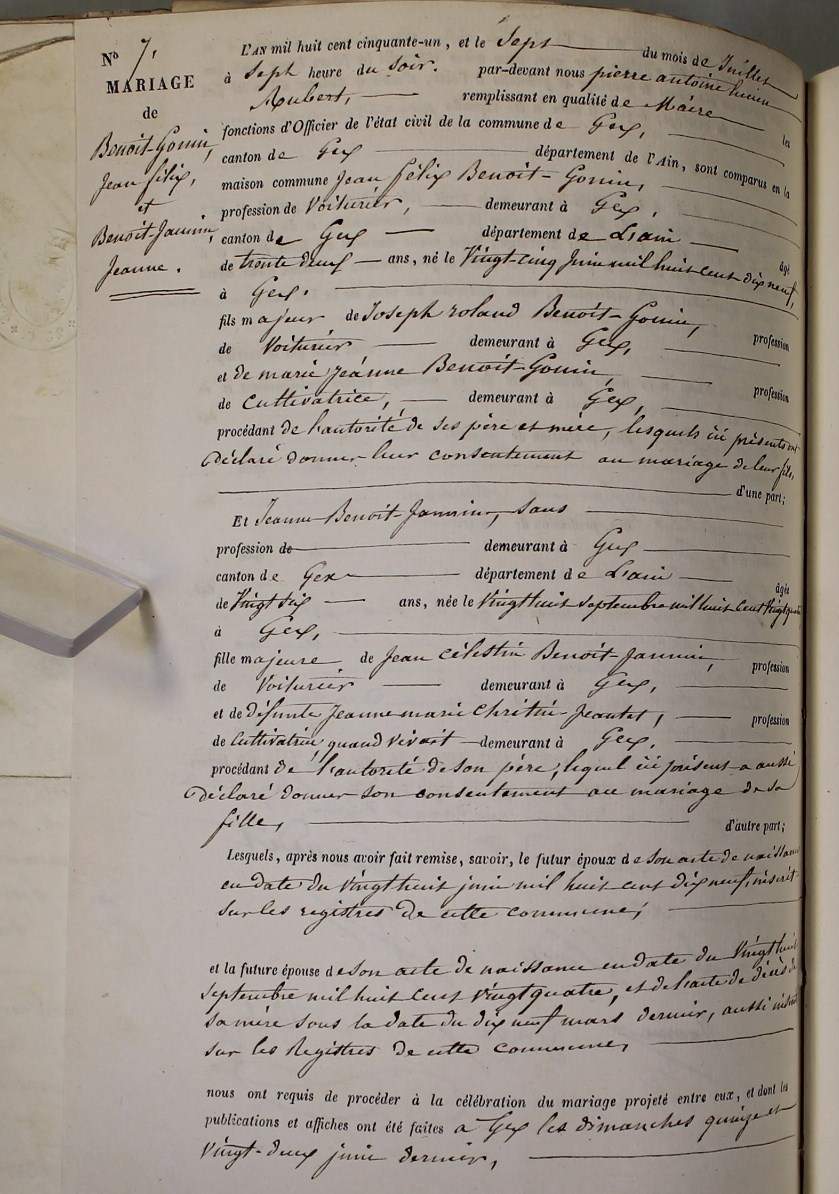 N° 7.
MARIAGE
de
Benoit-Gonin,
Jean félix,
et
Benoit-Jannin,
Jeanne.
L'AN mil huit cent cinquante-un, et le Sept du mois de Juillet
à Sept heure du Soir. par-devant nous pierre antoine lucien
Aubert, remplissant en qualité de Maire les
fonctions d'Officier de l'état civil de la commune de Gex,
canton de Gex département de l'Ain, sont comparus en la
maison commune Jean félix Benoit-Gonin,
profession de Voiturier, demeurant à Gex,
canton de Gex département de L'ain âgé
de trente deux ans, né le Vingt-cinq Juin mil huit cent dix neuf,
à Gex,
fils majeur de Joseph roland Benoit-Gonin, profession
de Voiturier demeurant à Gex,
et de marie Jeánne Benoit-Gonin, profession
de Cultivatrice, demeurant à Gex,
procédant de l'autorité de ses père et mère, lesquels ici présents ont
Déclaré donner leur consentement au mariage de leur fils,
d'une part;
Et Jeanne Benoit-Jannin, Sans
profession de demeurant à Gex
canton de Gex département de L'ain âgée
de Vingt six ans, née le Vingt huit Septembre mil huit Cent Vingt quatre
à Gex,
fille majeure de Jean Célestin Benoit-Jannin, profession
de Voiturier demeurant à Gex,
et de défunte Jeanne marie Chritin-Jeantet, profession
de Cultivatrice quand vivait demeurant à Gex,
procédant de l'autorité de son père, lequel ici présent a aussi
Déclaré donner son consentement au mariage de sa
fille, d'autre part;
Lesquels, après nous avoir fait remise, savoir, le futur époux de Son acte de naissance
en date du Vingt huit juin mil huit cent dix neuf, inscrit
sur les registres de cette commune;
et la future épouse de son acte de naissance en date du Vingt huit
Septembre mil huit cent Vingt quatre, et de l'acte de décès de
sa mère sous la date du dix neuf mars dernier, aussi inscrit
sur les Registres de cette commune,
nous ont requis de procéder à la célébration du mariage projeté entre eux, et dont les
publications et affiches ont été faites a Gex les dimanches quinze et
Vingt-deux juin dernier,